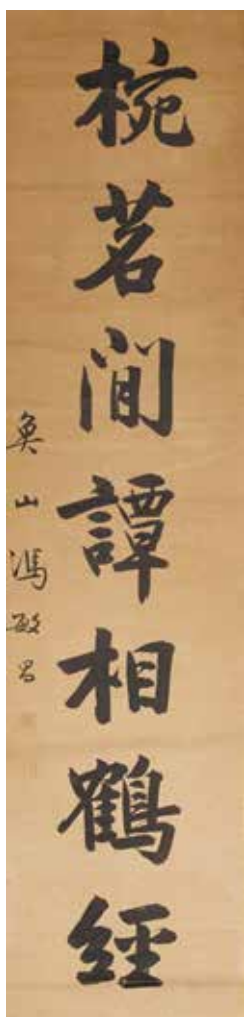 椀茗閒譚相鶴經
魚山馮敏昌